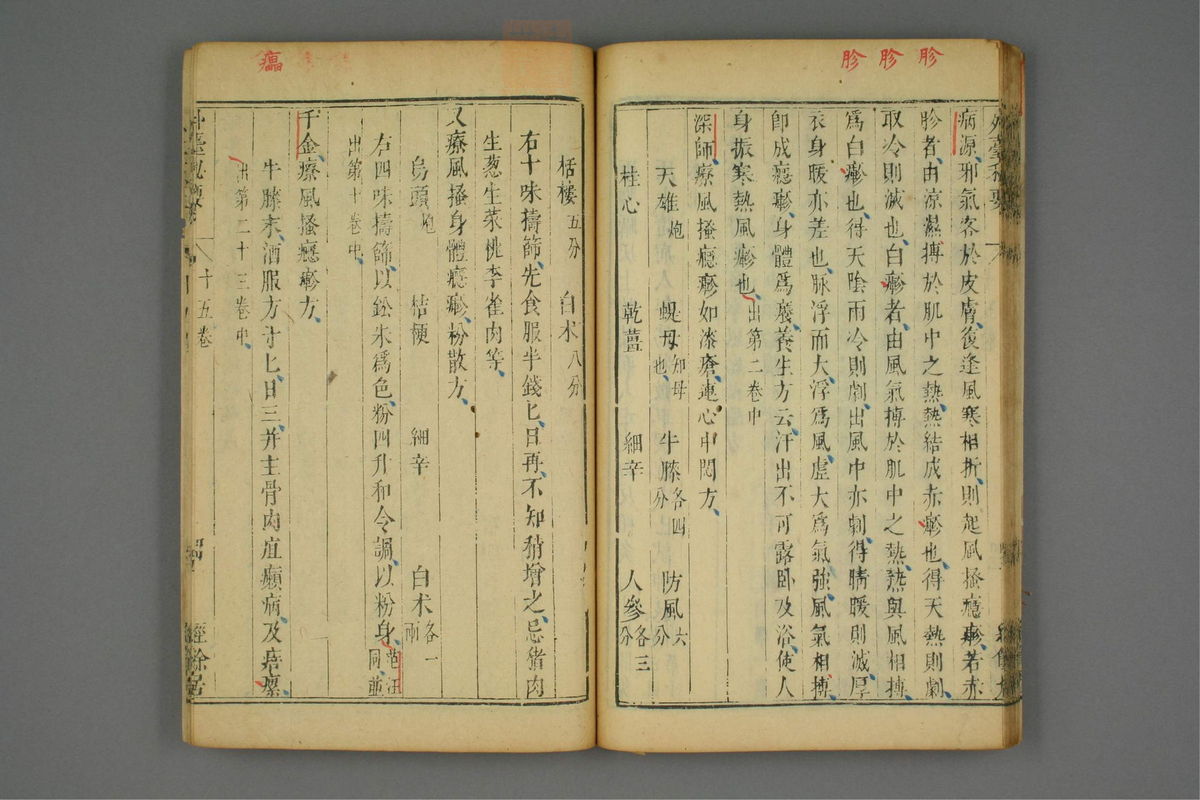 胗 胗 胗
病源邪氣客於皮膚後逢風寒相折則起風搔癮㾦若赤
胗者由涼濕搏於肌中之熱熱結成赤㾦也得天熱則劇
取冷則減也白㾦者由風氣搏於肌中之熱熱與風相搏
爲白㾦也得天陰雨冷則劇出風中亦劇得晴暖則減厚
衣身暖亦差也脉浮而大浮爲風虛大爲氣強風氣相搏
卽成癮㾦身體爲癢養生方云汗出不可露卧及浴使人
身振寒熱風㾦也出第二卷中
深師療風搔癮㾦如漆瘡連心中悶方
天雄炮 蝭母知母也 牛膝各四分 防風六分
桂心 乾薑 細辛 人參各三分
瘟
栝樓五分 白术八分
右十味擣篩先食服半錢匕日再不知稍增之忌猪肉
生葱生菜桃李雀肉等
又療風搔身體癮㾦粉散方
烏頭炮 桔梗 細辛 白术各一兩
右四味擣篩以鈆朱爲色粉四升和令調以粉身范汪同並
出第十卷中
千金療風搔癮㾦方
牛膝末酒服方寸匕日三并主骨肉疽癩病及痦㿔
出第二十三卷中
十五卷
經餘居